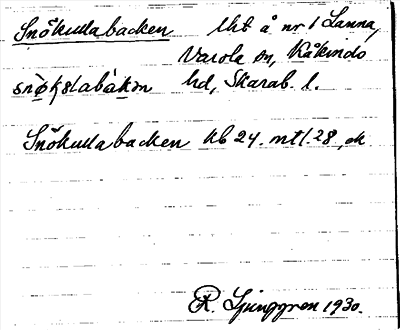 Snökullabacken Uht å nr 1 Lanna,
Varola sn, Kåkinds
hd, Skarab. l.
Snökullabacken hb 24. mtl. 28, ek
R. Ljunggren 1930.